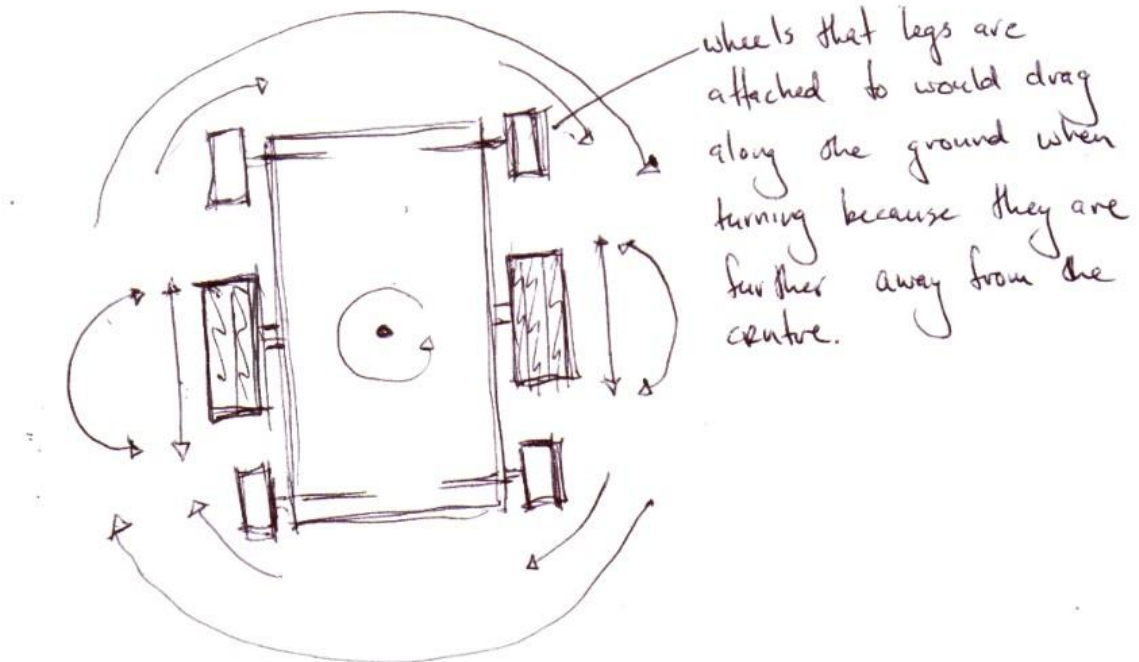 wheels that legs are
attached to would drag
along the ground when
turning because they are
further away from the
centre.